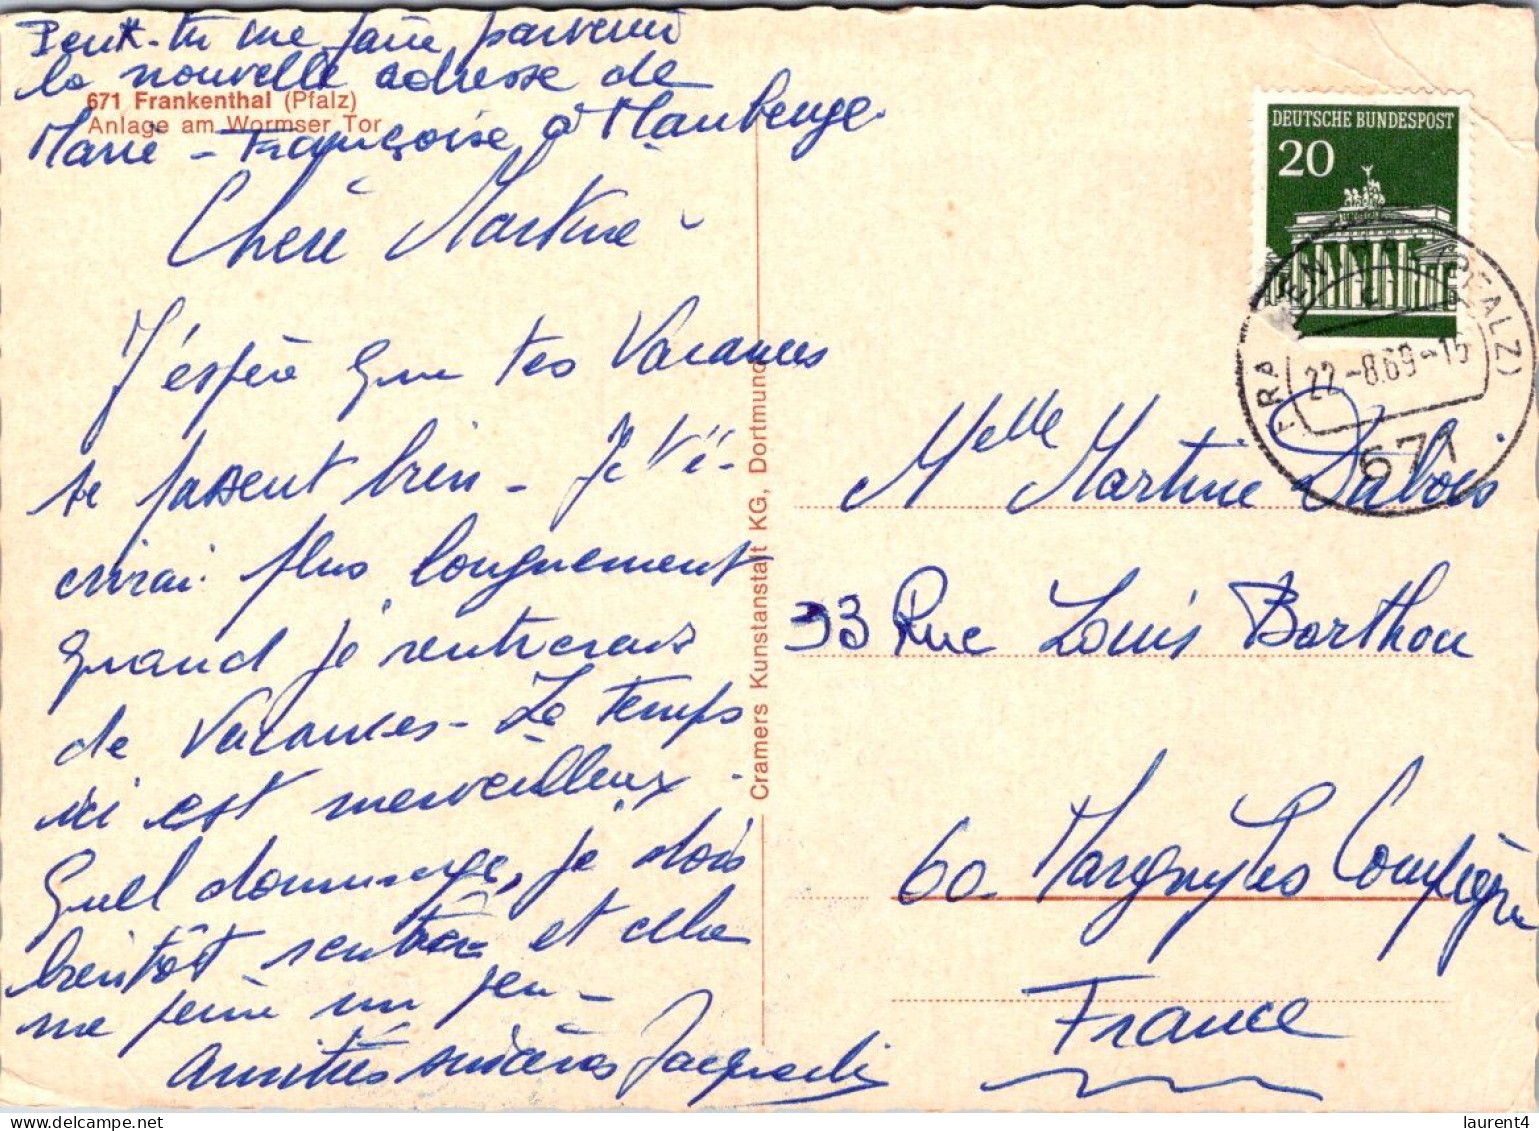 Peux-tu me faire parvenir
la nouvelle adresse de
Marie-Françoise à Maubeuge.
671 Frankenthal (Pfalz)
Anlage am Wormser Tor
Chère Martine -
J'espère que tes Vacances
se passent bien - Je t'é-
crirai plus longuement
quand je rentrerais
de Vacances - Le temps
ici est merveilleux.
Quel dommage, je dois
bientôt rentrer et cela
me peine un peu -
Amitiés sincères
Cramers Kunstanstalt KG, Dortmund
DEUTSCHE BUNDESPOST
20
(PFALZ)
22-8.69-15
671
Melle Martine Dubois
33 Rue Louis Barthou
60 Margny les Compiègne
France
laurent4